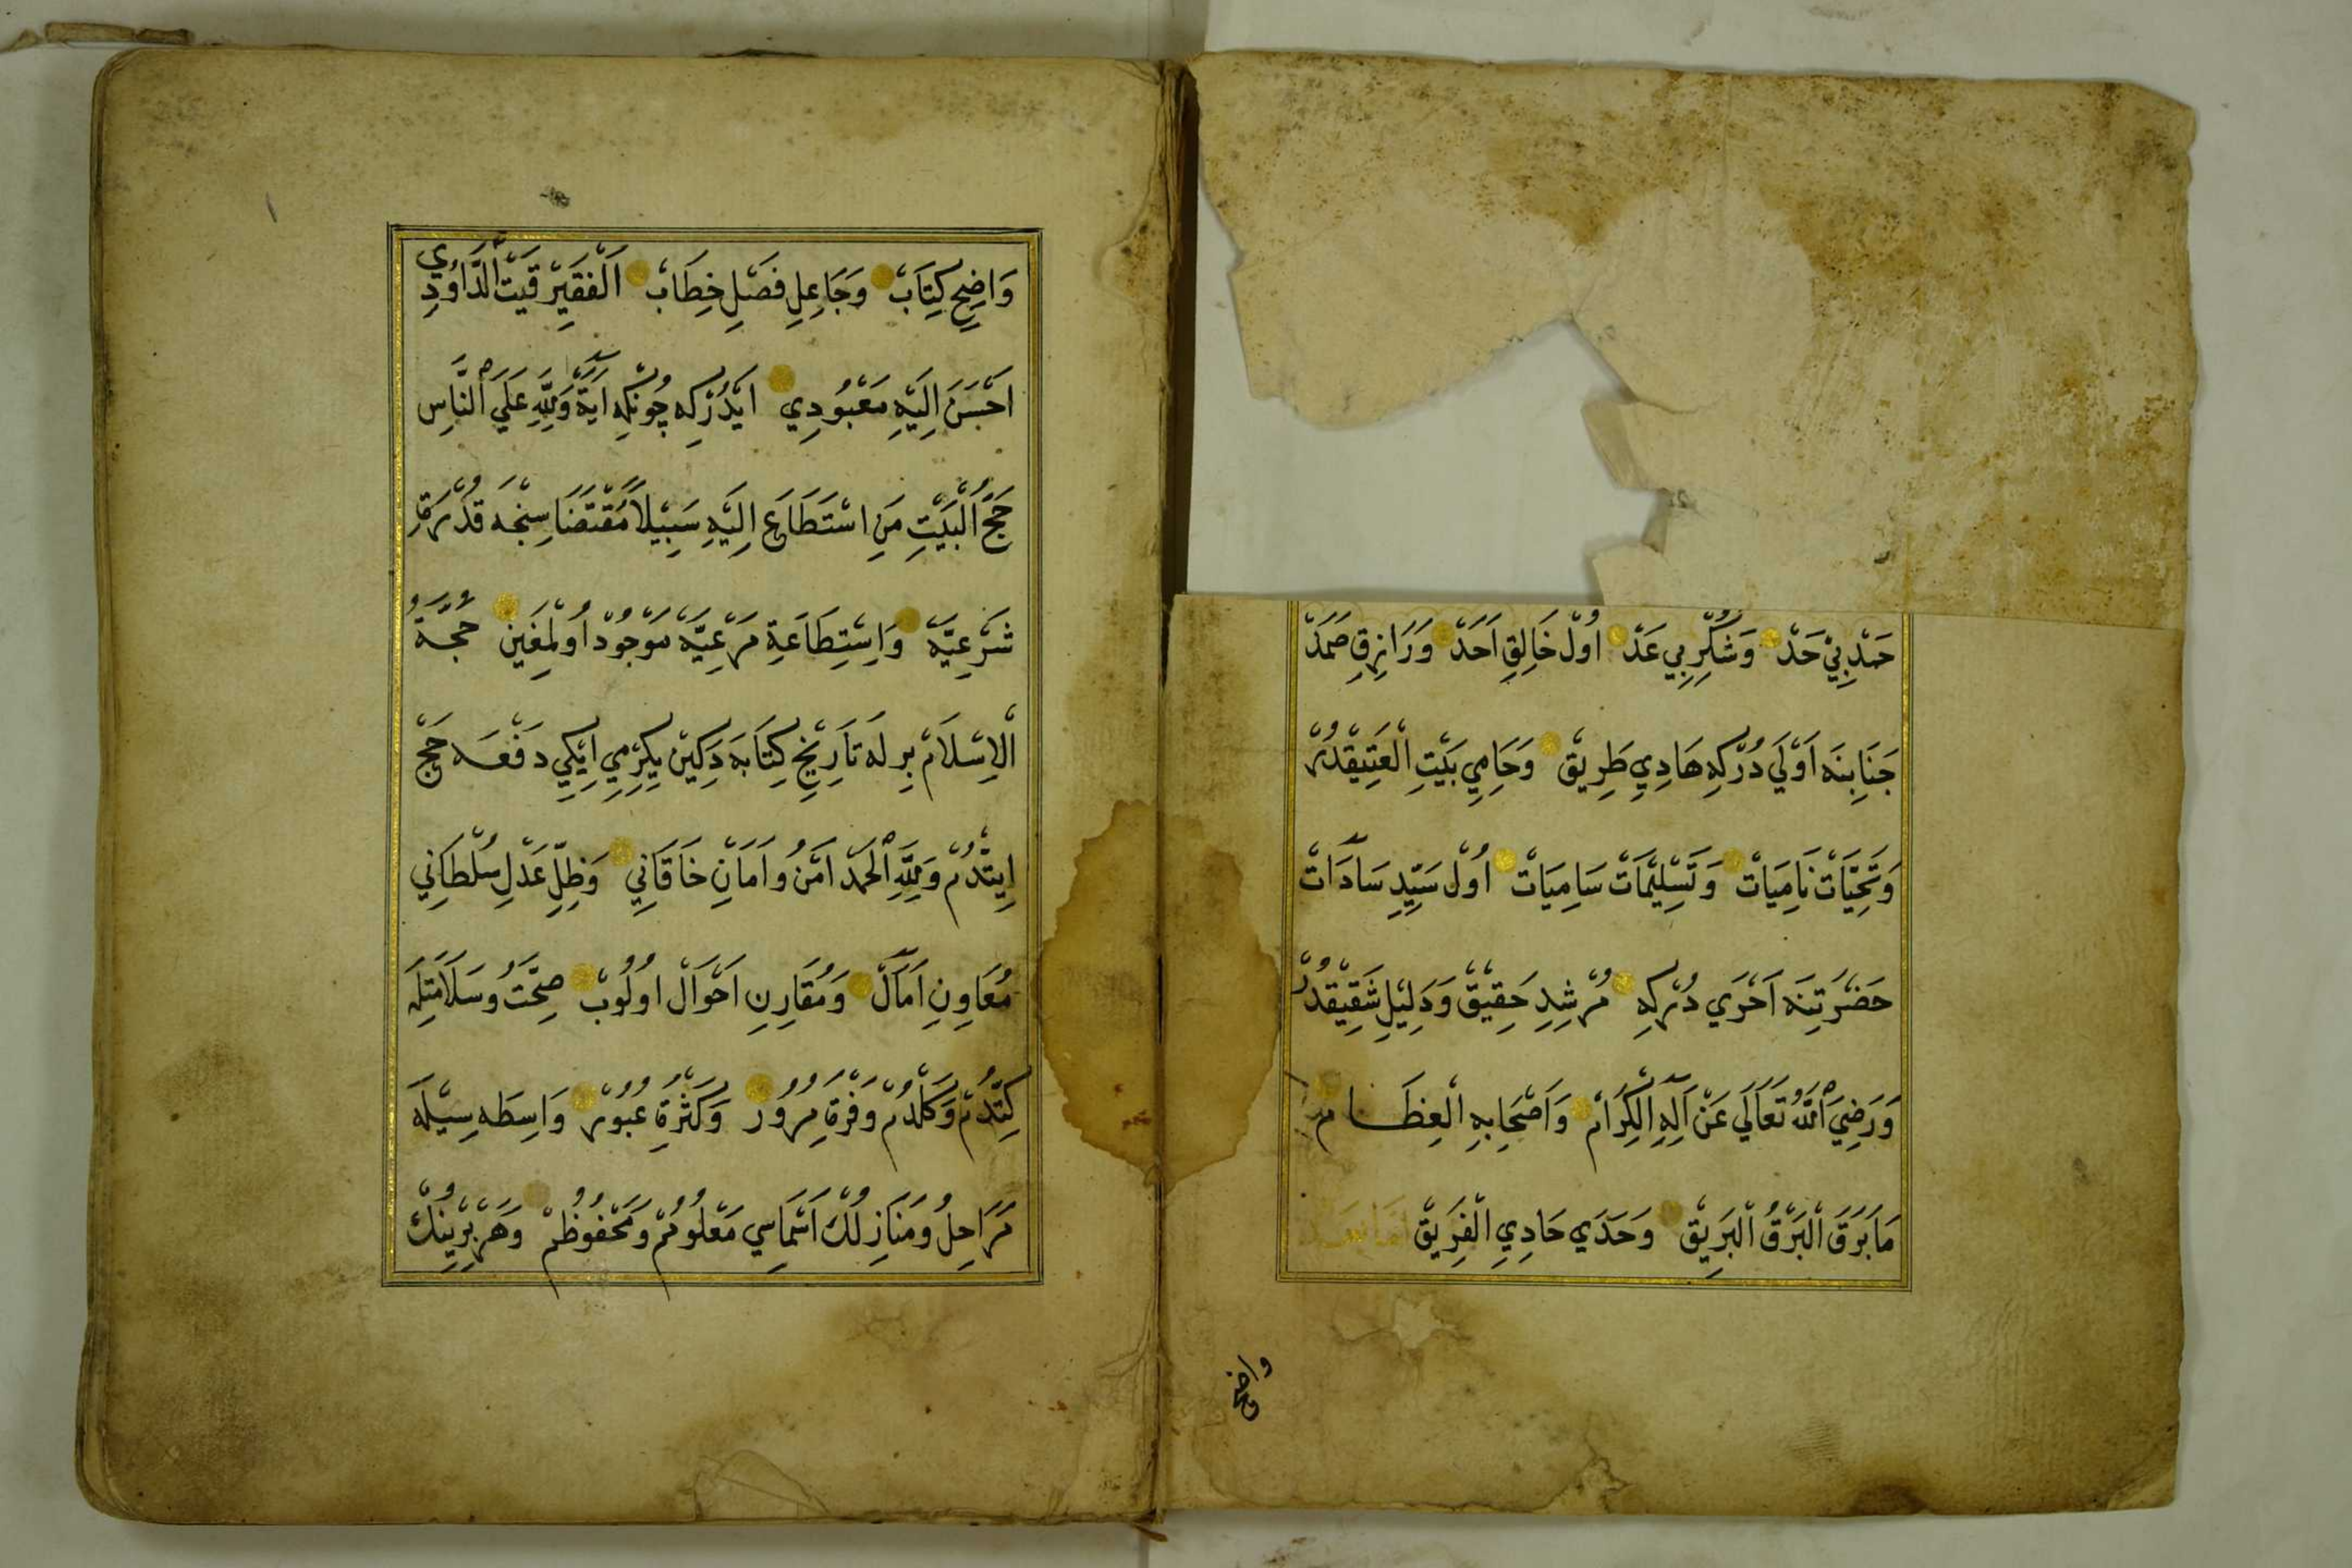 حَمْدِ بِيْ حَدْ وَشُكْرِ بِي عَدْ اُولْ خَالِقِ اَحَدْ وَرَازِقِ صَمَدْ
جَنَابِنَه اَوْلَي دُرْكِه هَادِيِ طَرِيقْ وَحَامِيِ بَيْتِ الْعَتِيقْدُرْ
وَتَحِيَّاتْ نَامِيَاتْ وَتَسْلِيْمَاتْ سَامِيَاتْ اُولْ سَيِّدِ سَادَاتْ
حَضْرَتِنَه اَحْرَي دُرْكِه مُرْشِدِ حَقِيقْ وَدَلِيْلِ شَفِيْقْدُرْ
وَرَضِيَ اللّٰهُ تَعَالَي عَنْ آلِهِ الْكِرَامْ وَاَصْحَابِهِ الْعِظَامْ
مَا بَرَقَ الْبَرْقُ الْبَرِيقْ وَحَدَي حَادِيِ الْفَرِيقْ اَمَّا بَعْدُ
واضح
وَاضِحِ كِتَابْ وَجَاعِلِ فَصْلِ خِطَابْ اَلْفَقِيرْ قَيْتُ الدَّاوُدِي
اَحْسَنَ اِلَيْهِ مَعْبُودِي اَيْدُرْكِه چُونْكِه آيَةْ وَلِلّٰهِ عَلَي النَّاسِ
حَجُّ الْبَيْتِ مَنِ اسْتَطَاعَ اِلَيْهِ سَبِيْلًا مُقْتَضَاسِنْجَه قُدْرَةِ
شَرْعِيَّه وَاِسْتِطَاعَةِ مَرْعِيَّه مَوْجُودْ اُولْمِغِينْ حُجَّةُ
الْاِسْلَامْ بِرلَه تَارِيْخِ كِتَابَه دَكِينْ يِكِرْمِي اِيْكِي دَفْعَه حَجْ
اِيتْدُمْ وَلِلّٰهِ الْحَمْدْ اَمْنُ وَاَمَانِ خَاقَانِي وَظِلِّ عَدْلِ سُلْطَانِي
مُعَاوِنِ آمَالْ وَمُقَارِنِ اَحْوَالْ اُولُوبْ صِحَّتُ وَسَلَامَتِلَه
كِتْدُمْ وَكَلْدُمْ وَفْرَةِ مُرُورْ وَكَثْرَةِ عُبُورْ وَاسِطَه سِيْلَه
مَرَاحِلُ وَمَنَازِلُكْ اَسْمَاسِي مَعْلُومُمْ وَمَحْفُوظُمْ وَهَرْ بِرْيِنُكْ